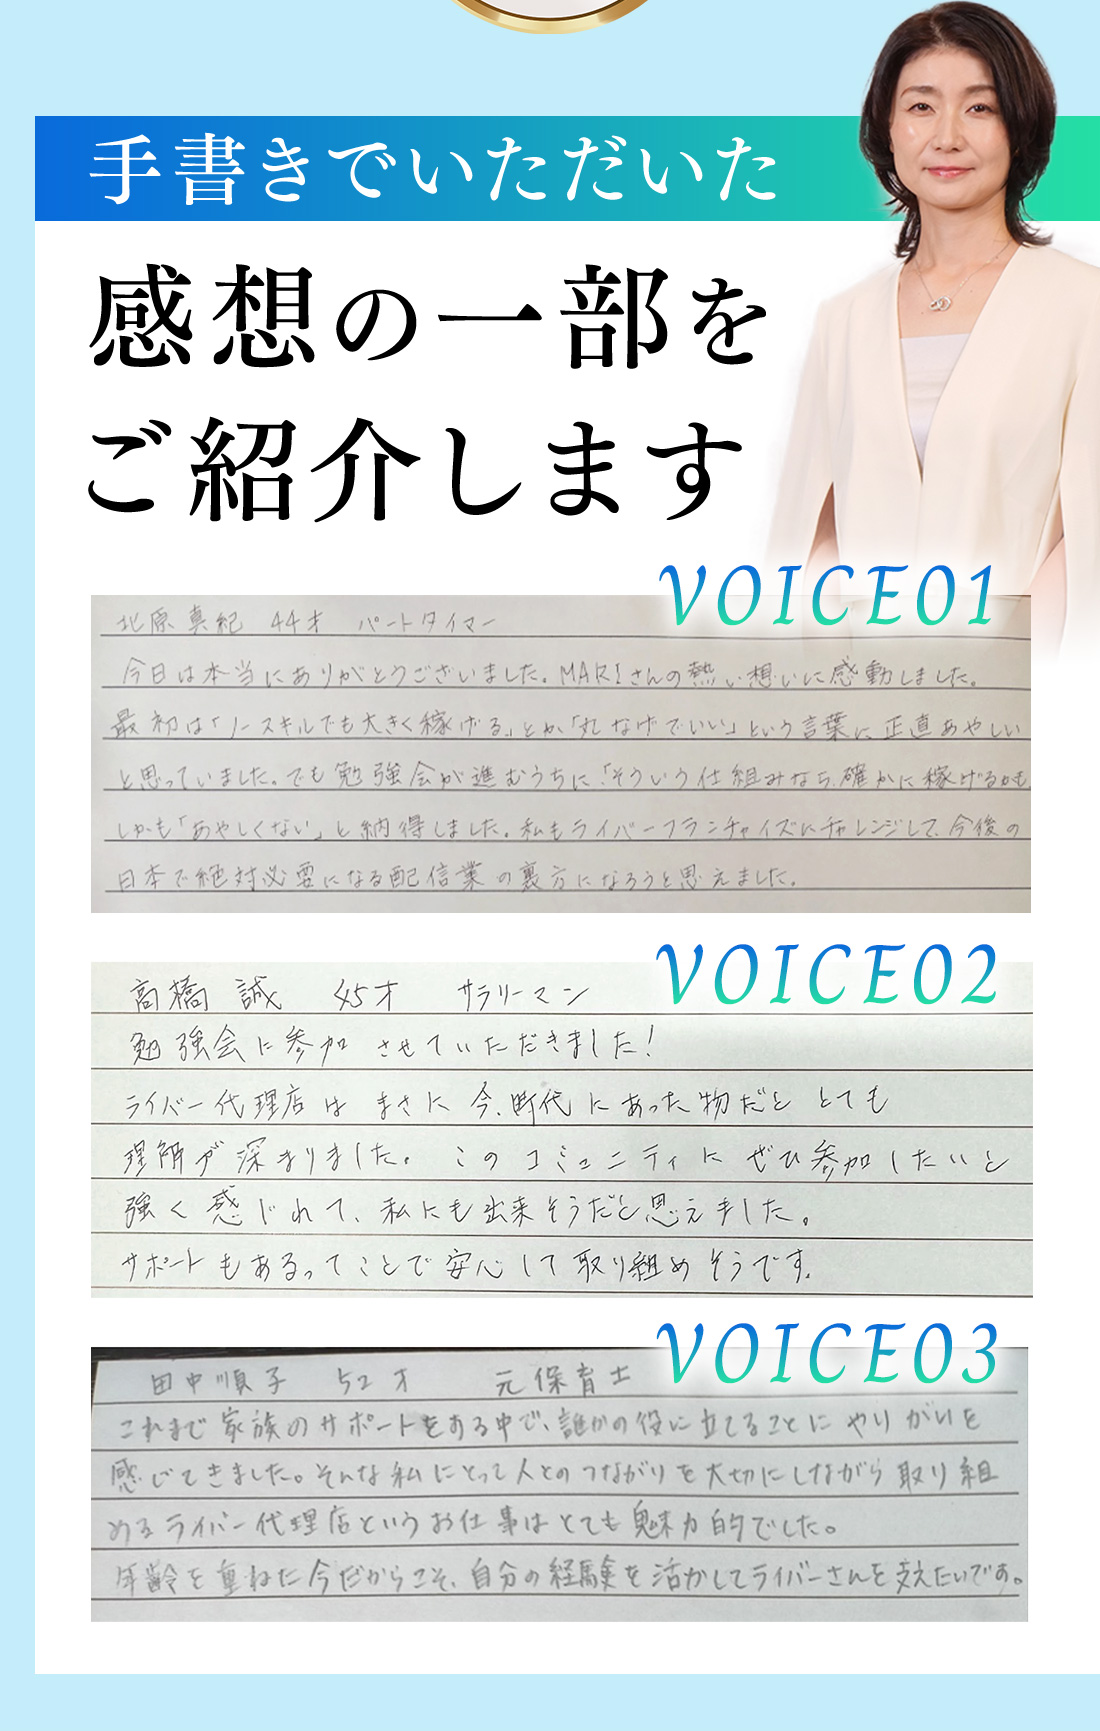 手書きでいただいた
感想の一部を
ご紹介します
VOICE01
北原真紀 44才 パートタイマー
今日は本当にありがとうございました。MARIさんの熱い想いに感動しました。
最初は「ノースキルでも大きく稼げる」とか「丸なげでいい」という言葉に正直あやしい
と思っていました。でも勉強会が進むうちに「そういう仕組みなら、確かに稼げるかも
しかも「あやしくない」と納得しました。私もライバーフランチャイズにチャレンジして、今後の
日本で絶対必要になる配信業の裏方になろうと思えました。
VOICE02
高橋 誠 45才 サラリーマン
勉強会に参加させていただきました!
ライバー代理店はまさに今、時代にあった物だととても
理解が深まりました。このコミュニティにぜひ参加したいと
強く感じれて、私にも出来そうだと思えました。
サポートもあるってことで安心して取り組めそうです。
VOICE03
田中順子 52才 元保育士
これまで家族のサポートをする中で、誰かの役に立てることにやりがいを
感じてきました。そんな私にとって人とのつながりを大切にしながら取り組
めるライバー代理店というお仕事はとても魅力的でした。
年齢を重ねた今だからこそ、自分の経験を活かしてライバーさんを支えたいです。